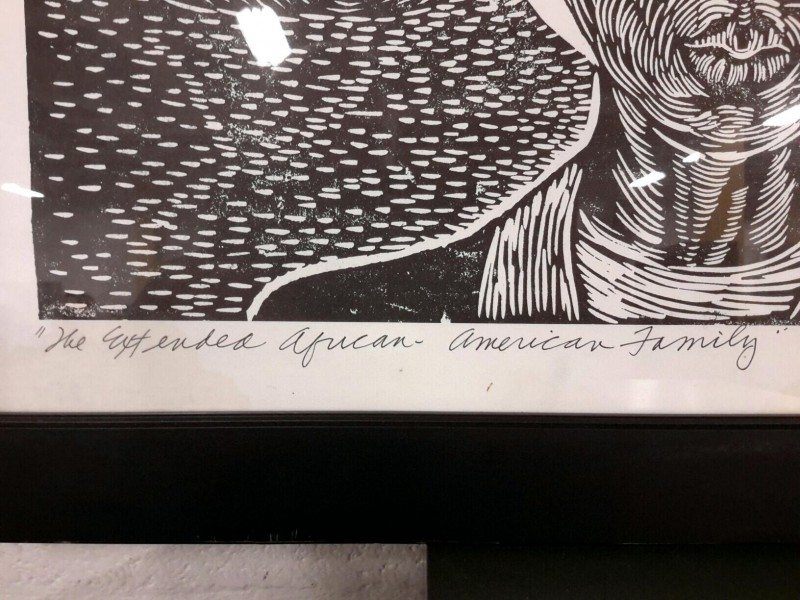 "The Extended African-American Family"